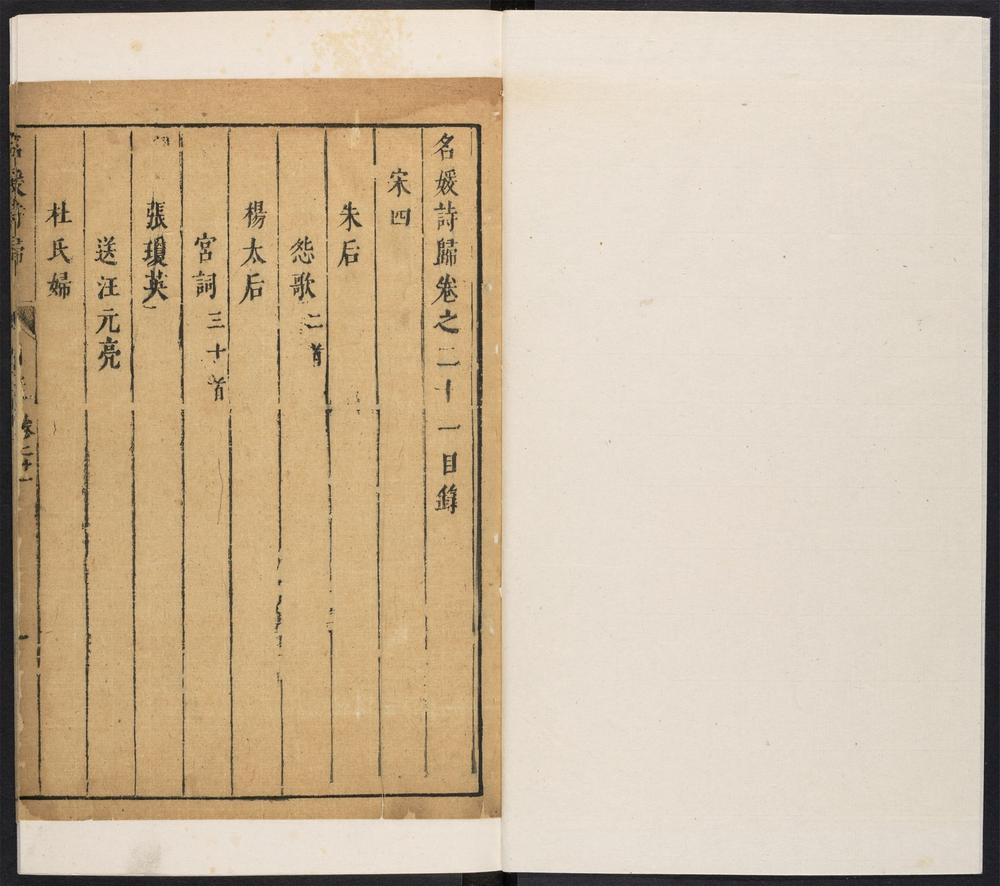 名媛詩歸卷之二十一目錄
宋四
朱后
怨歌二首
楊太后
宮詞三十首
張瓊英
送汪元亮
杜氏婦
名媛詩歸
卷之二十一